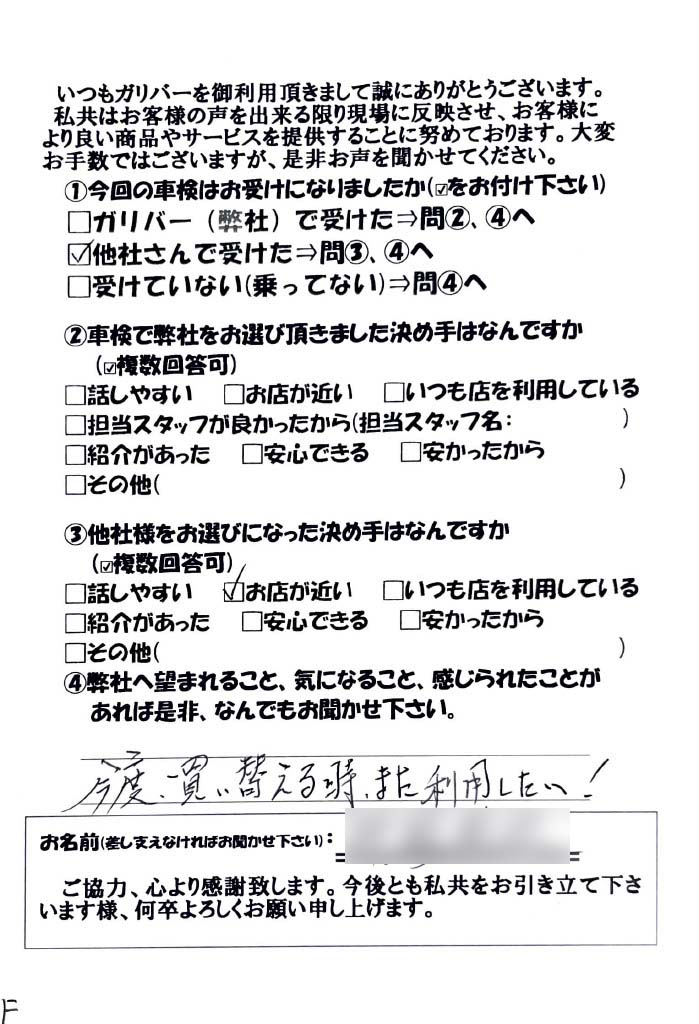 いつもガリバーを御利用頂きまして誠にありがとうございます。
私共はお客様の声を出来る限り現場に反映させ、お客様に
より良い商品やサービスを提供することに努めております。大変
お手数ではございますが、是非お声を聞かせてください。
①今回の車検はお受けになりましたか(☑をお付け下さい)
□ガリバー（弊社）で受けた⇒問②、④へ
☑他社さんで受けた⇒問③、④へ
□受けていない(乗ってない)⇒問④へ
②車検で弊社をお選び頂きました決め手はなんですか
(☑複数回答可)
□話しやすい □お店が近い □いつも店を利用している
□担当スタッフが良かったから(担当スタッフ名： )
□紹介があった □安心できる □安かったから
□その他( )
③他社様をお選びになった決め手はなんですか
(☑複数回答可)
□話しやすい ☑お店が近い □いつも店を利用している
□紹介があった □安心できる □安かったから
□その他( )
④弊社へ望まれること、気になること、感じられたことが
あれば是非、なんでもお聞かせ下さい。
今度、買い替える時、また利用したい！
お名前(差し支えなければお聞かせ下さい)：
ご協力、心より感謝致します。今後とも私共をお引き立て下さ
います様、何卒よろしくお願い申し上げます。